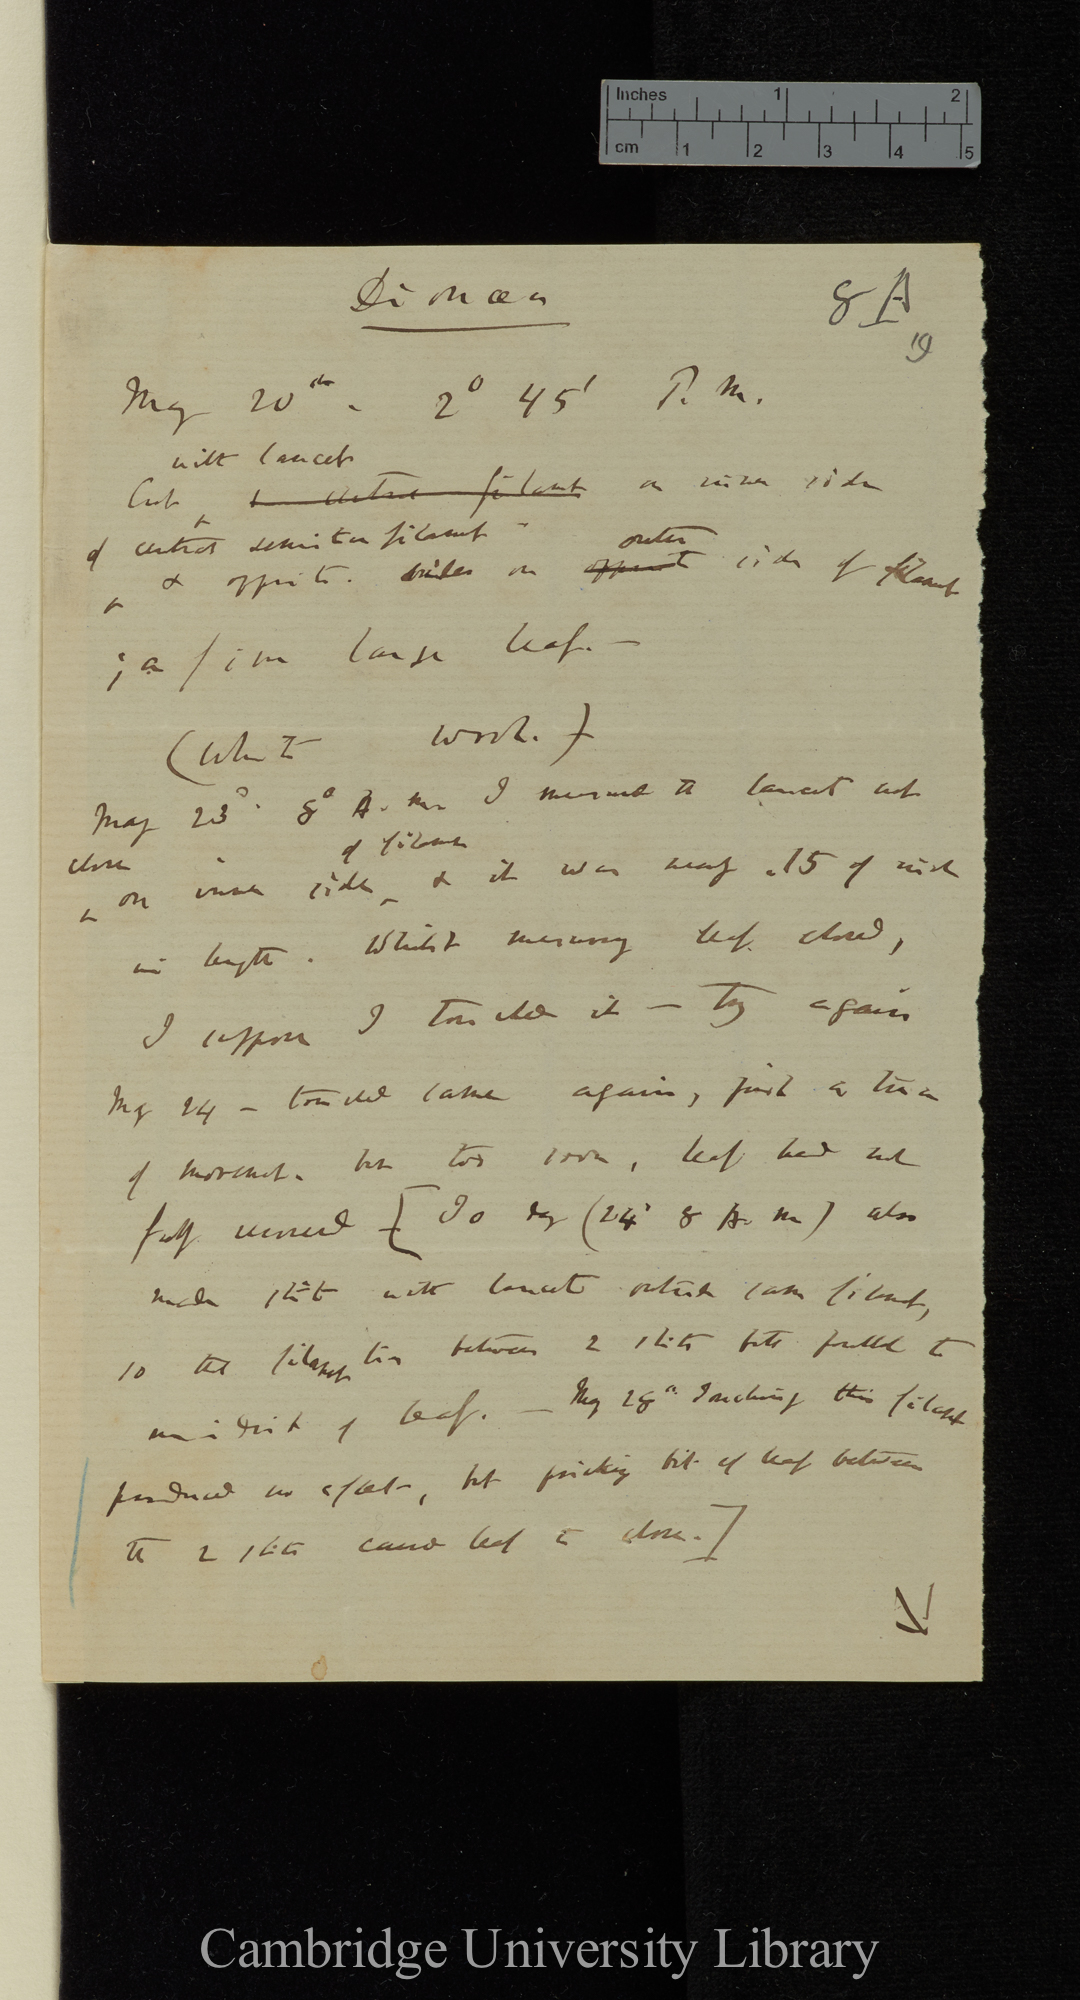 Inches 1 2
cm 1 2 3 4 5
Dionæa
8 A
19
May 20th. 2° 45' P.m.
with lancet
Cut on inner side
of central sensitive filament
outer
& opposite. on side of filament
; a fine large leaf. —
(White wool.)
May 23d. 8° A.m. I measured the lancet cut
close of filament
on inner side, & it was nearly .15 of inch
in length. Whilst measuring leaf closed,
I suppose I touched it — Try again
May 24 — touched same again, just a trace
of movement. but too soon, leaf had not
fully recovered [To day (24' 8 A.m) also
made slit with lancet outside same filament,
so that filament lies between 2 slits both parallel to
midrib of leaf. — May 28th Touching this filament
produced no effect, but pricking bit of leaf between
the 2 slits caused leaf to close.]
Cambridge University Library